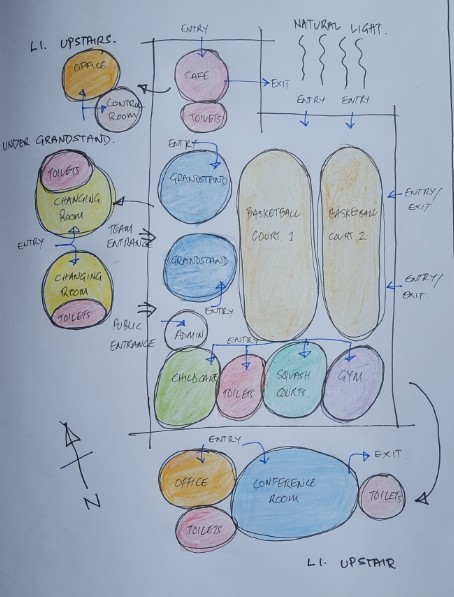 L1. UPSTAIRS.
ENTRY
NATURAL LIGHT.
OFFICE
CAFE
EXIT
CONTROL
ROOM
TOILETS
ENTRY
ENTRY
UNDER GRANDSTAND.
ENTRY
TOILETS
CHANGING
ROOM
GRANDSTAND
BASKETBALL
COURT 1
BASKETBALL
COURT 2
ENTRY/
EXIT
ENTRY
TEAM
ENTRANCE
CHANGING
ROOM
TOILETS
GRANDSTAND
ENTRY
ENTRY/
EXIT.
PUBLIC
ENTRANCE
ADMIN
ENTRY
CHILDCARE
TOILETS
SQUASH
COURTS
GYM
N
ENTRY
EXIT.
OFFICE
CONFERENCE
ROOM
TOILETS
TOILETS
L1. UPSTAIR